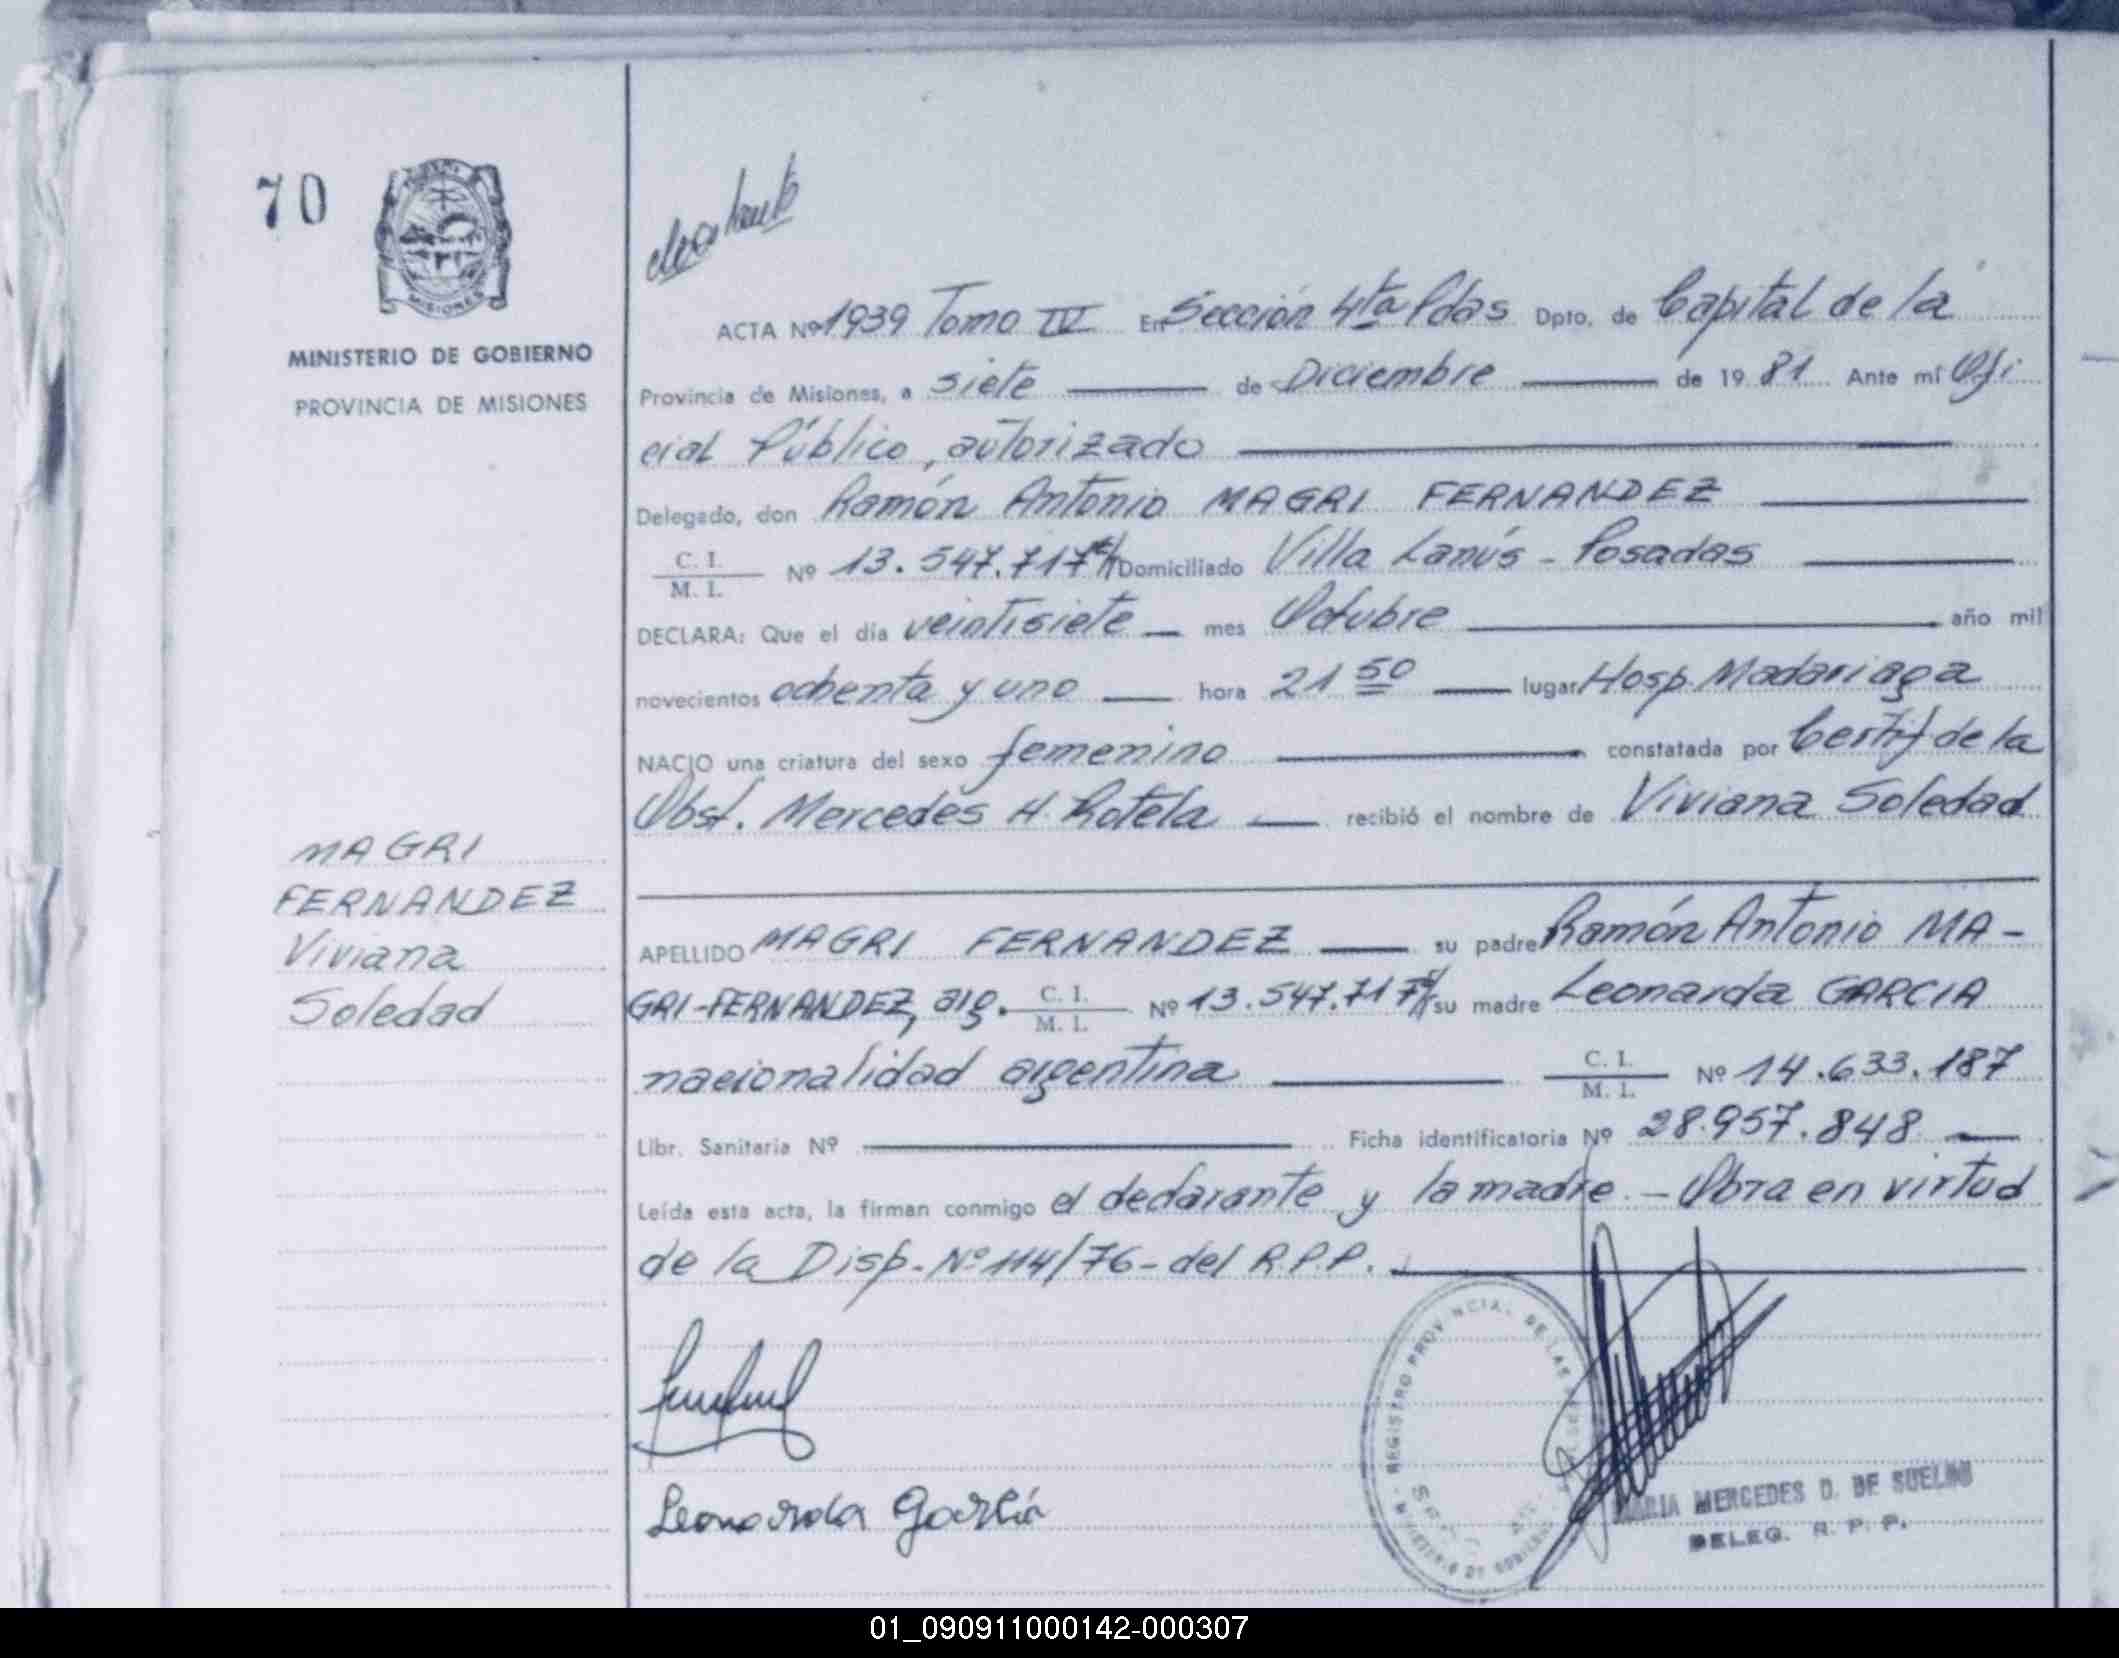 70
MISIONES
MINISTERIO DE GOBIERNO
PROVINCIA DE MISIONES
MAGRI
FERNANDEZ
Viviana
Soledad
ACTA Nº 1939 Tomo IV En Sección 4ta Pdas Dpto. de Capital de la
Provincia de Misiones, a siete de Diciembre de 1981 Ante mí Ofi
cial Público, autorizado
Delegado, don Ramón Antonio MAGRI FERNANDEZ
C. I.
M. I. Nº 13.547.717 Domiciliado Villa Lanús - Posadas
DECLARA: Que el día veintisiete mes Octubre año mil
novecientos ochenta y uno hora 21 50 lugar Hosp. Madariaga
NACIO una criatura del sexo femenino constatada por Certif de la
Obst. Mercedes H. Rotela recibió el nombre de Viviana Soledad
APELLIDO MAGRI FERNANDEZ su padre Ramón Antonio MA-
GRI-FERNANDEZ, arg. C. I. M. I. Nº 13.547.717 su madre Leonarda GARCIA
nacionalidad argentina C. I. M. I. Nº 14.633.187
Libr. Sanitaria Nº Ficha identificatoria Nº 28.957.848
Leída esta acta, la firman conmigo el declarante y la madre. - Obra en virtud
de la Disp. Nº 114/76 - del R.P.P.
Leonarda García
REGISTRO PROVINCIAL DE LAS
MARIA MERCEDES D. DE SUELDO
DELEG. R. P. P.
01_090911000142-000307